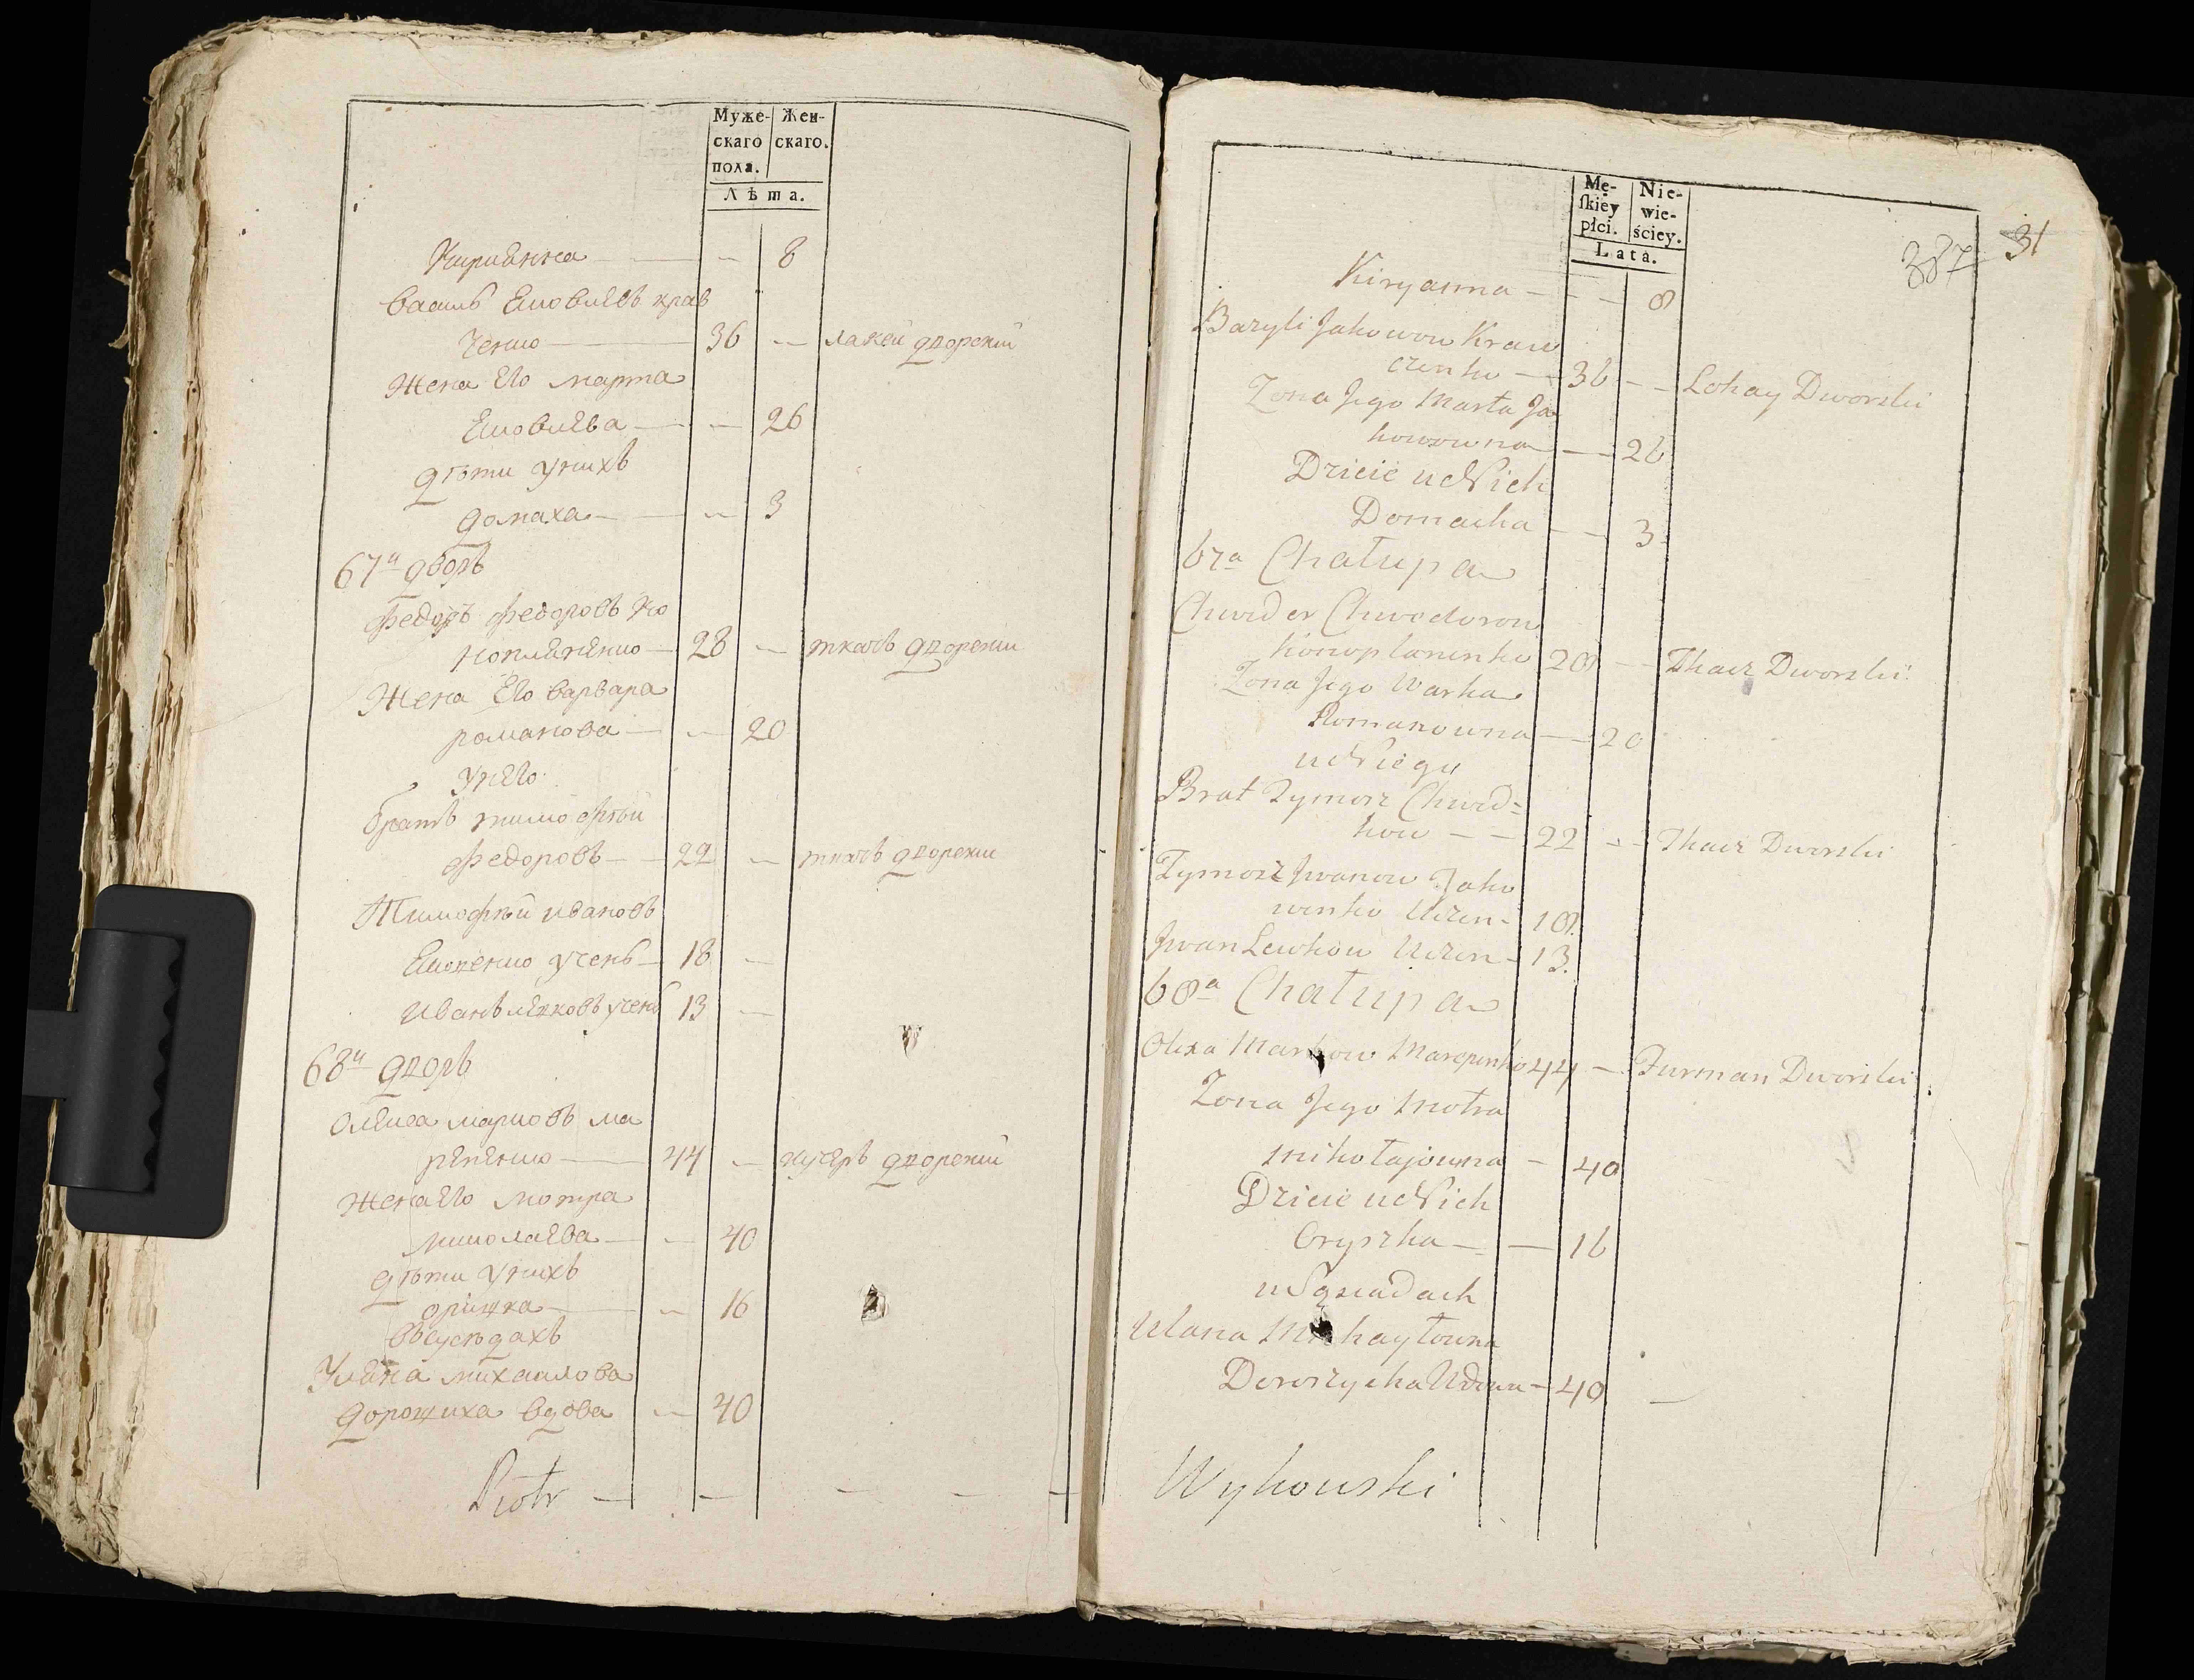 Муже- Жен-
скаго скаго.
пола.
Лѣта.
Кириянна — — 8
Василь Яковлевъ крав
ченко — 36 — лакей дворскій
Жена Его марта
Яковлева — — 26
дѣти унихъ
домаха — — 3
67й дворъ
Федоръ федоровъ Ко
нопляненко — 28 — ткачъ дворскии
Жена Его варвара
романова — — 20
унего
братъ тимофѣй
федоровъ — 22 — ткачъ дворскии
Тимофѣй ивановъ
Яковенко учень — 18 —
Иванъ левковъ учень 13 —
68й дворъ
Олекса марковъ ма
репенко — 44 — кучеръ дворскии
Жена Его мотра
миколаева — — 40
дѣти унихъ
оришка — — 16
Всусѣдахъ
Уляна михаилова
дорошиха вдова — 40
Piotr — — — — —
387 31
Mę- Nie-
skiey wie-
płci. ściey.
Lata.
Kiryanna — — 8
Bazyli Jakowow Kraw
czenko — 36 — — Lokay Dworski
Zona Jego Marta Ja
kowowna — — 26
Dziecie u Nich
Domacha — — 3
67a Chałupa
Chwedor Chwedorow
Konoplanenko 28 — — Tkacz Dworski
Zona Jego Warka
Romanowna — — 20
u Niego
Brat Tymosz Chwed=
kow — — 22 — — Tkacz Dworski
Tymosz Jwanow Jako
wenko Uczen - 18.
Jwan Lewkow Uczen - 13.
68a Chałupa
Olexa Markow Marepenko 44 — Furman Dworski
Zona Jego Motra
Mikołajowna — 40
Dziecie u Nich
Oryszka — — 16
w Sąsiadach
Ulana Michayłowna
Doroszycha Wdowa — 40 —
Wykowski